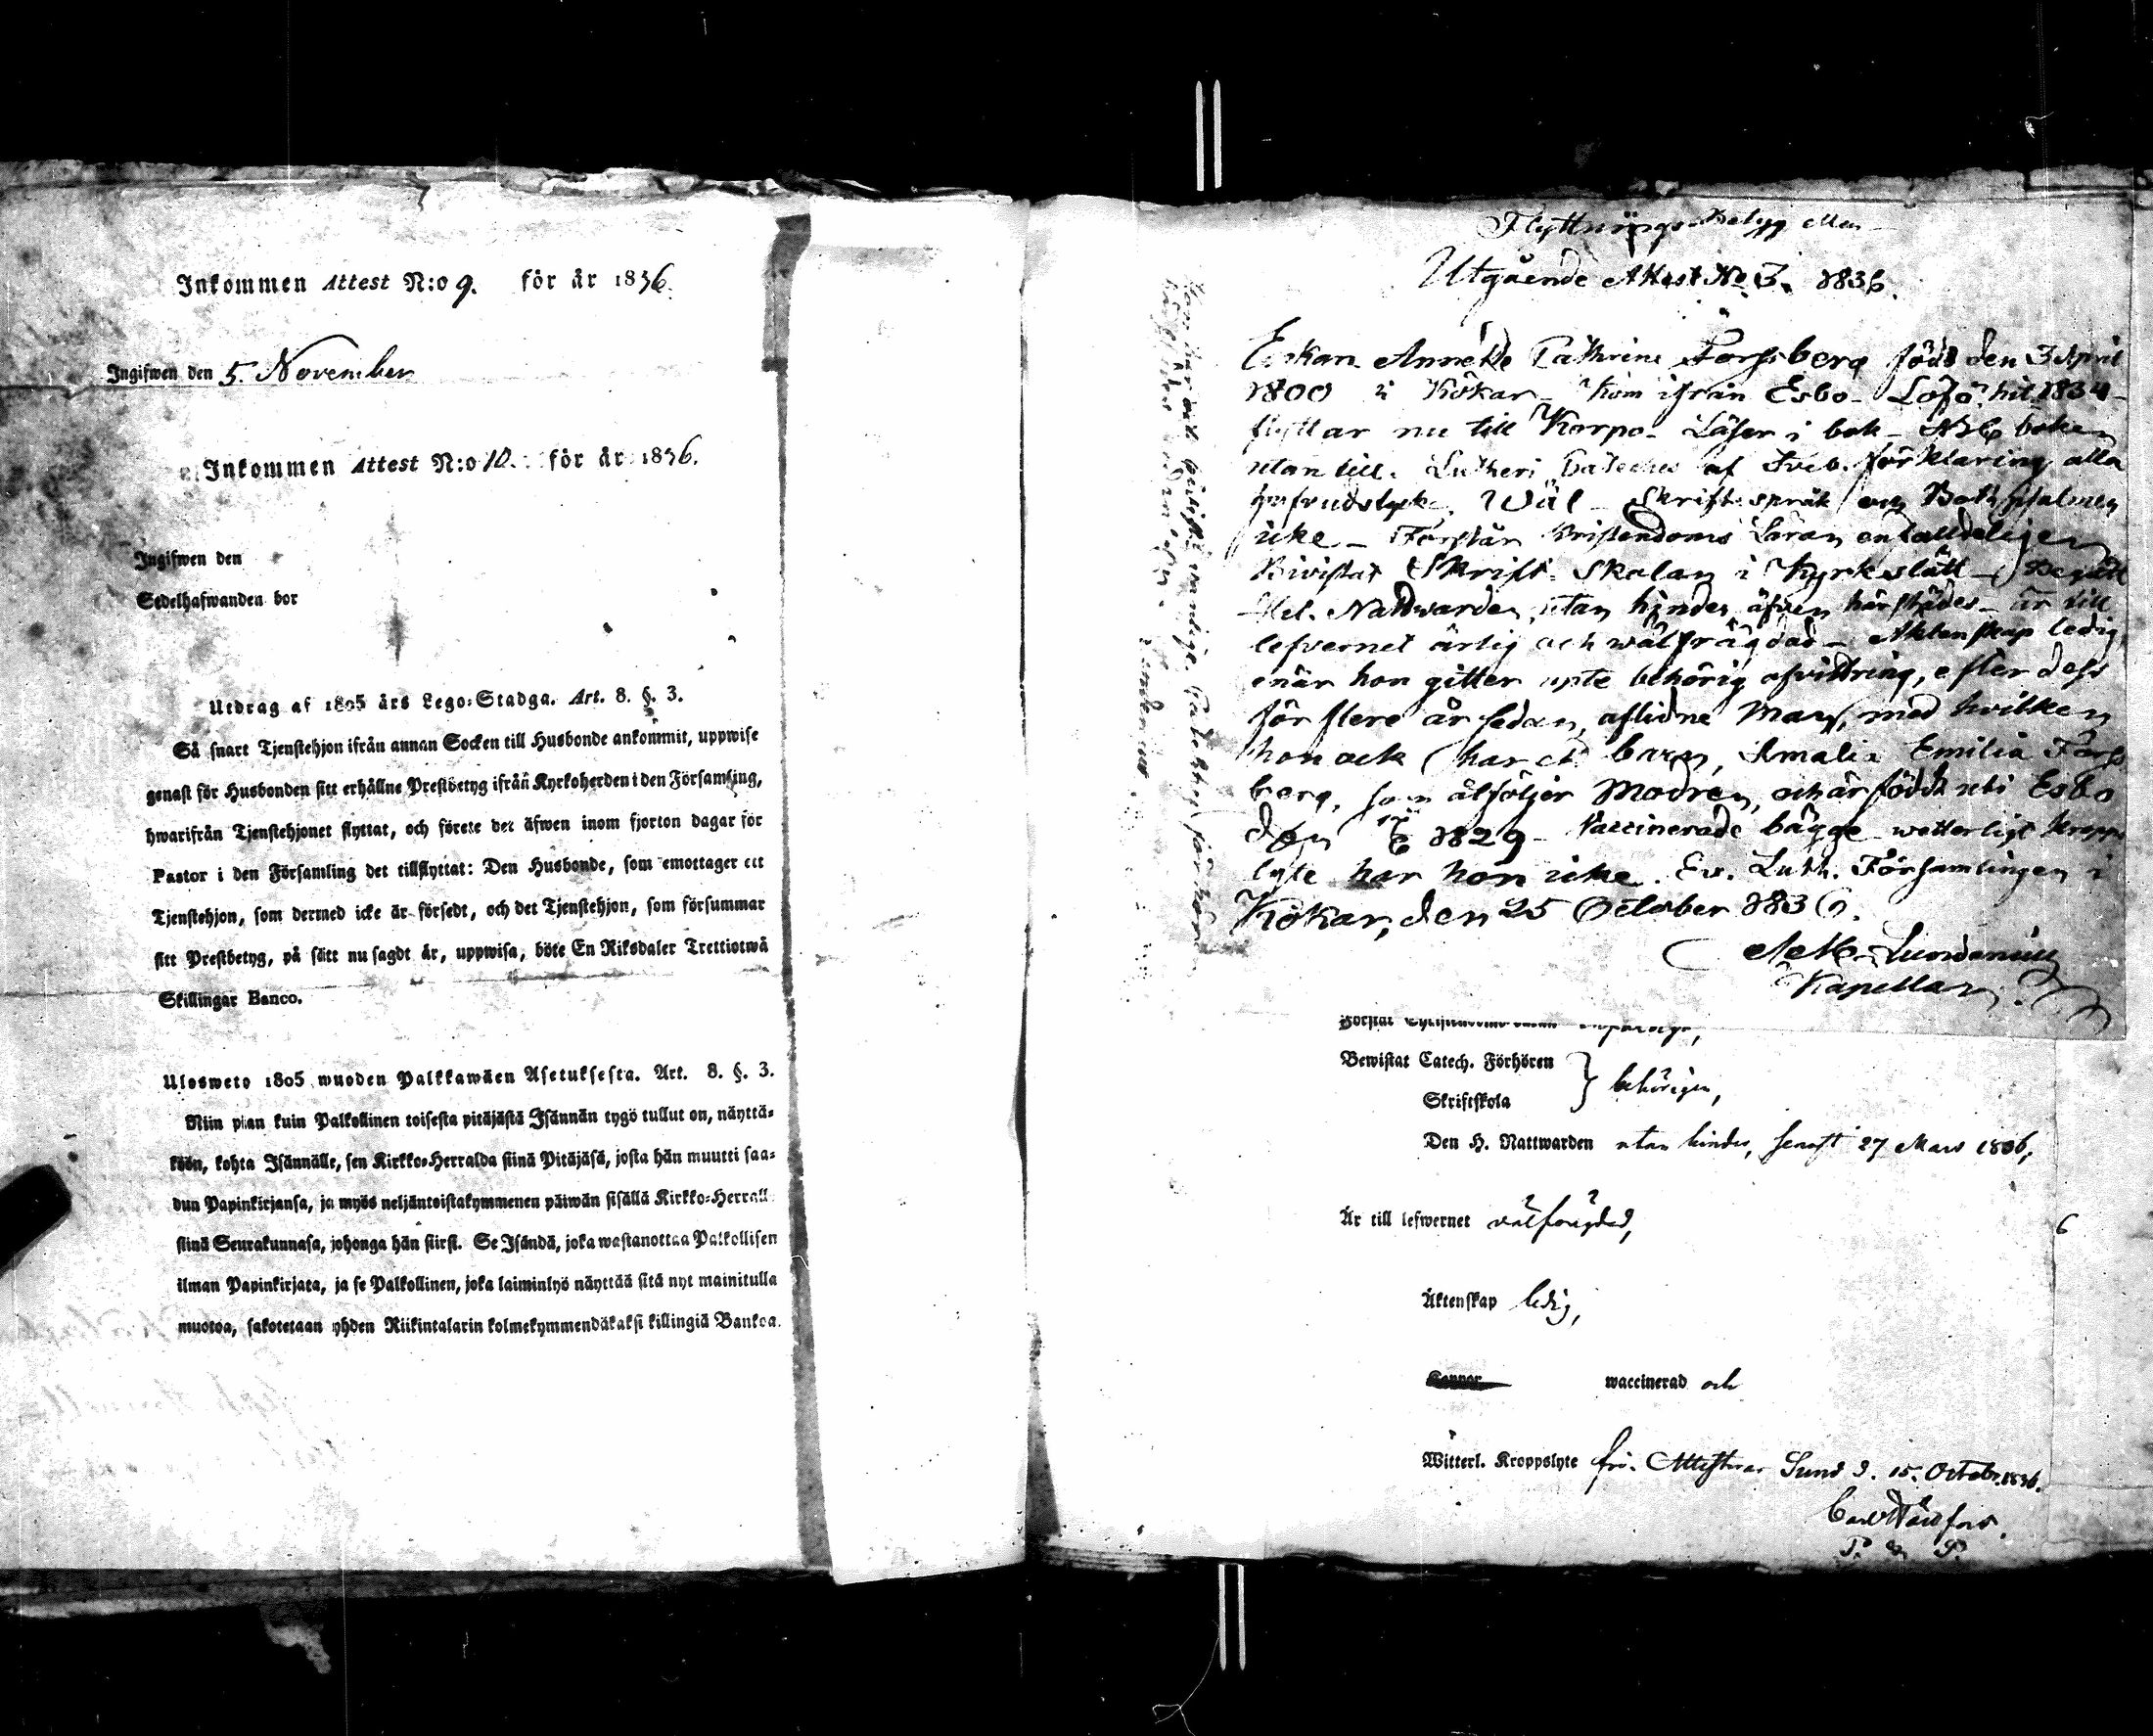 Inkommen Attest N:o 9. för år 1836.
Ingifwen den 5. November
Inkommen Attest N:o 10. för år 1836.
Ingifwen den
Sedelhafwanden bor
Utdrag af 1805 års Lego-Stadga. Art. 8. §. 3.
Så snart Tjenstehjon ifrån annan Socken till Husbonde ankommit, uppwise
genast för Husbonden sitt erhållne Prestbetyg ifrån Kyrkoherden i den Församling,
hwarifrån Tjenstehjonet flyttat, och förete det äfwen inom fjorton dagar för
Pastor i den Församling det tillflyttat: Den Husbonde, som emottager ett
Tjenstehjon, som dermed icke är försedt, och det Tjenstehjon, som försummar
sitt Prestbetyg, på sätt nu sagdt är, uppwisa, böte En Riksdaler Trettiotwå
Skillingar Banco.
Ulosweto 1805 wuoden Palkkawäen Asetuksesta. Art. 8. §. 3.
Niin pian kuin Palkollinen toisesta pitäjästä Isännän tygö tullut on, näyttä-
köön, kohta Isännälle, sen Kirkko-Herralda siinä Pitäjäsä, josta hän muutti saa-
dun Papinkirjansa, ja myös neljäntoistakymmenen päiwän sisällä Kirkko-Herrall
siinä Seurakunnasa, johonga hän siirsi. Se Isändä, joka wastanottaa Palkollisen
ilman Papinkirjata, ja se Palkollinen, joka laiminlyö näyttää sitä nyt mainitulla
muotoa, sakotetaan yhden Riikintalarin kolmekymmendäkaksi killingiä Bankoa.
Flyttnings Betyg
Utgående Attest No 3. 1836.
Enkan Cathrina Forssberg född den 3 April
1800 i Kökar kom ifrån Esbo Löfö hit 1834
flyttar nu till Korpo Läser i bok
utan till. Lutheri af Sveb. förklaring alla
Wäl Skrifte språk och Botpsalmer
icke Förstår Kristendoms Läran
Bivistat Skrift Skolan i Kyrkslätt Begått
Hel. Nattwarden utan hinder, äfven härstädes är till
lefvernet ärlig och wälfrägdad Aktenskap ledig
enär hon gitter upte behörig afvittring, efter dess
för flere år sedan aflidne Man, med hvilken
hon ock har ett barn, Amalia Emilia Forss
berg, som åtföljer Modren, och är född uti Esbo
den 1829 Vaccinerade bägge witterligt kropps
lyte har hon icke. Ev. Luth. Församlingen i
Kökar, den 25 October 1836.
Kapellan.
Bewistat Catech. Förhören
Skriftskola
behörigen,
Den H. Nattwarden utan hinder, senast 27 Mars 1836,
Är till lefwernet välfrägdad,
6
Äktenskap ledig,
waccinerad och
Witterl. Kroppslyte fri. Attesterar Sund d. 15. Octobr. 1836.